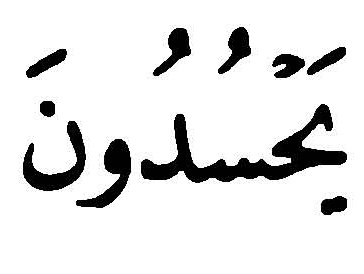 يَحْسُدُونَ